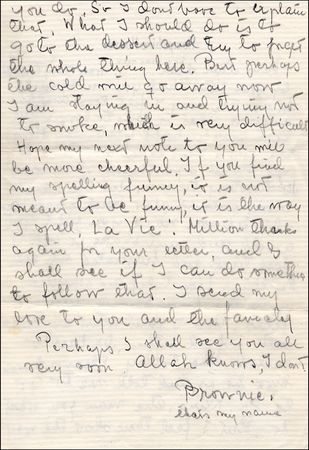 you do. So I dont have to explain
that. What I should do is to
go to the dessert and try to forget
the whole thing here. But perhaps
the cold will go away now
I am staying in and trying not
to smoke, which is very difficult
Hope my next note to you will
be more cheerful. If you find
my spelling funny, it is not
meant to be funny, it is the way
I spell, La Vie! Million thanks
again for your letter, and I
shall see if I can do something
to follow that. I send my
love to you and the family
Perhaps I shall see you all
very soon. Allah knows, I dont
Brownie.
thats my name